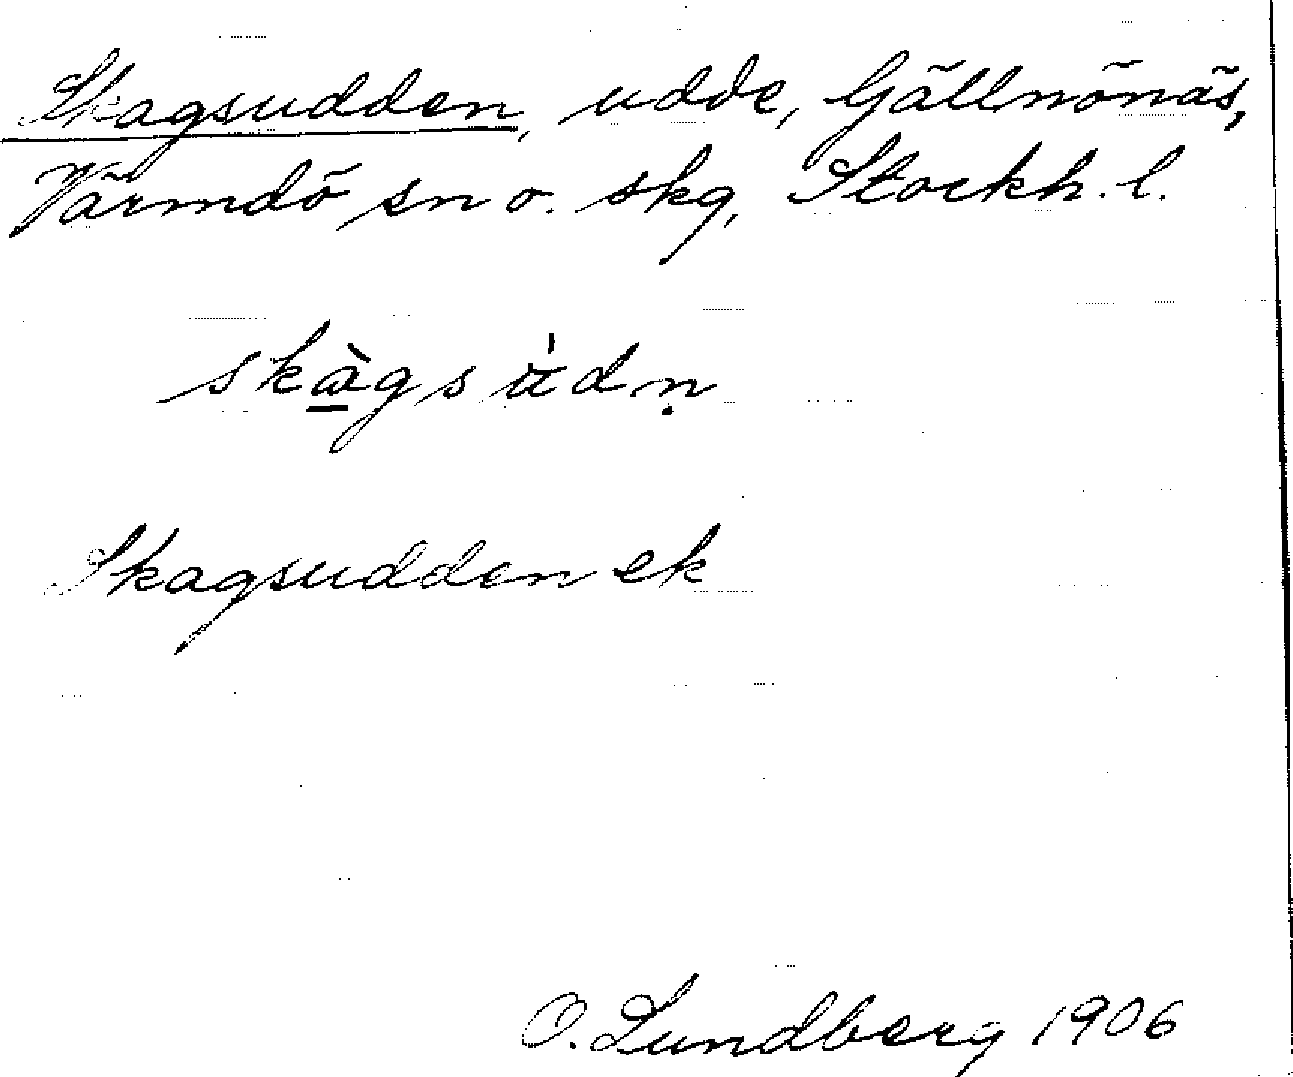 Skagsudden, udde, Gällnönäs,
Värmdö sn o. skg, Stockh. l.
skàgsùdṇ
Skagsudden ek
O. Lundberg 1906